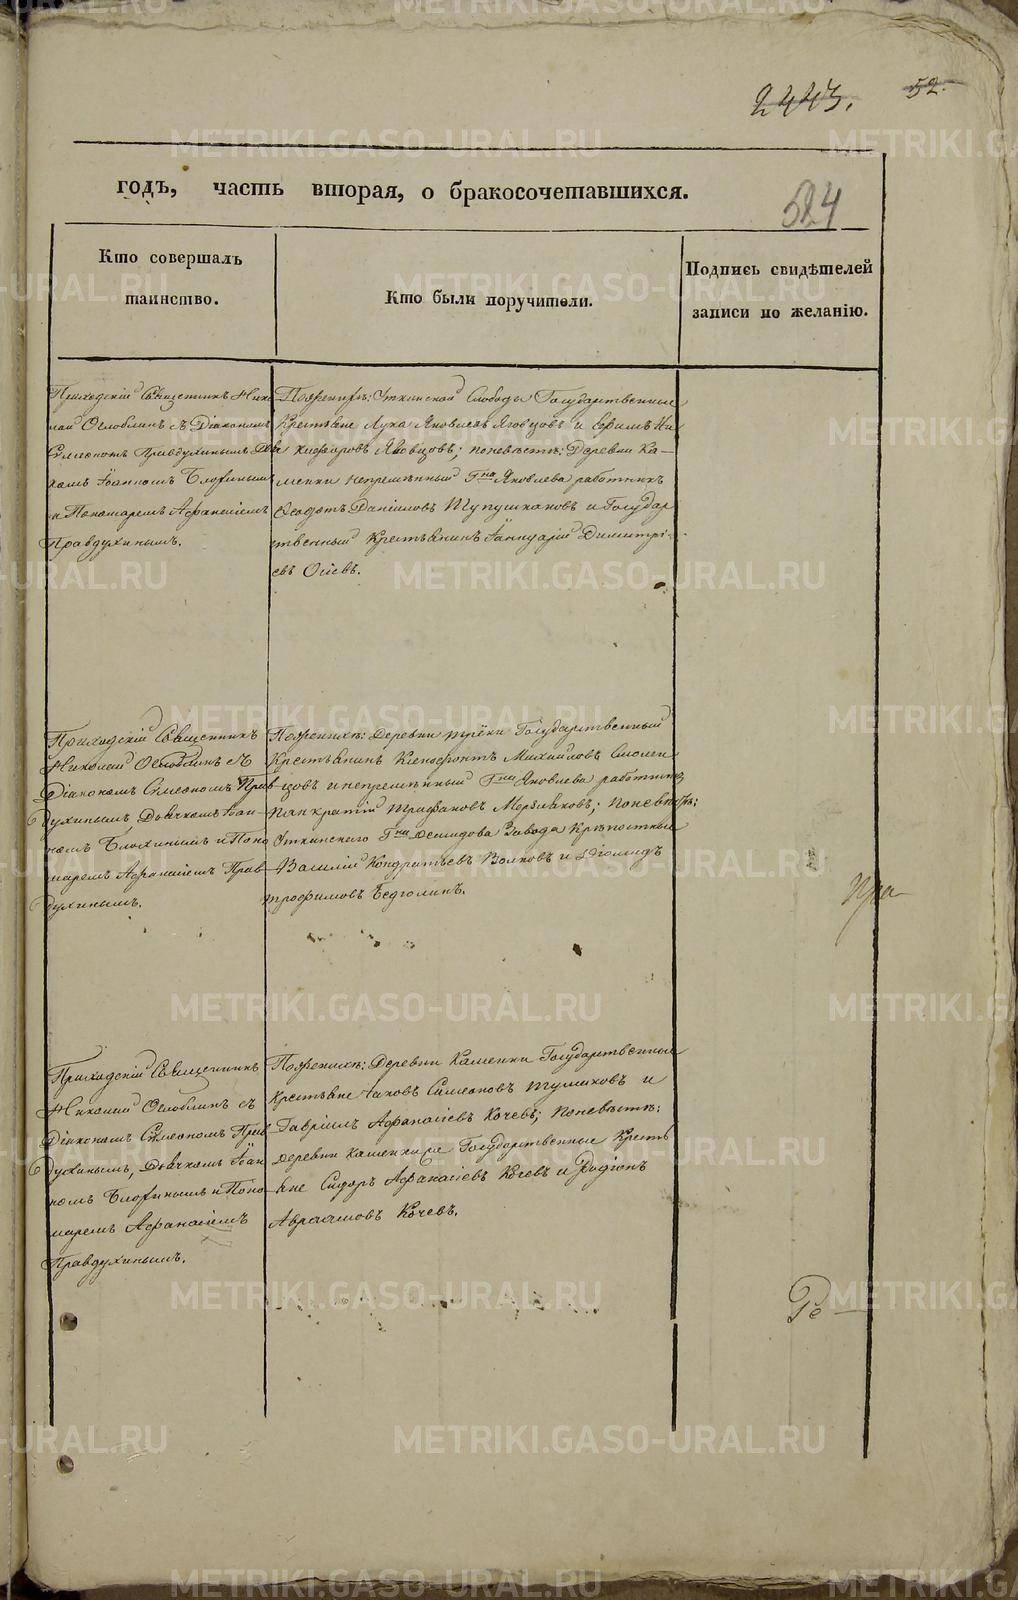 2443.
52.
годъ, часть вторая, о бракосочетавшихся.
524
Кто совершалъ
таинство.
Кто были поручители.
Подпись свидѣтелей
записи по желанію.
Приходскій Священникъ Нико
лай Оглоблинъ съ Діакономъ
Сѵмеономъ Правдухинымъ, Дья
комъ Іоанномъ
и Пономаремъ Афанасіемъ
Правдухинымъ.
По женихѣ: Уткинской Слободы Государственные
Крестьяне Лука Яковлевъ Яговцовъ и Ефимъ Ни
кифоровъ Яговцовъ; по невѣстѣ: Деревни Ка–
менки непремѣнный Гна Яковлева работникъ
Ѳеодотъ Даніиловъ Шупушкановъ и Государ
ственный Крестьянинъ Іаннуарій Димитрі–
евъ Осіевъ.
Приходскій Священникъ
Николай Оглоблинъ съ
Діакономъ Сѵмеономъ Прав–
духинымъ, Дьячкомъ Іоан–
номъ и Поно
маремъ Афанасіемъ Прав–
духинымъ.
По женихѣ: Деревни Трёки Государственный
Крестьянинъ Ксенофонтъ Михайловъ Смолен
цовъ и непремѣнный Гна Яковлева работникъ
Панкратій Трифановъ Мерзляковъ; по невѣстѣ:
Уткинскаго Гна Демидова Завода Крѣпостные
Василій Кондратьевъ Волковъ и Діомидъ
Трофимовъ
Пра
Приходскій Священникъ
Николай Оглоблинъ съ
Діакономъ Сѵмеономъ Прав
духинымъ, Дьячкомъ Іоан
номъ и Поно
маремъ Афанасіемъ
Правдухинымъ.
По женихѣ: Деревни Каменки Государственные
Крестьяне Іаковъ Симеоновъ Тумаковъ и
Гавріилъ Афанасіевъ Кочевъ; по невѣстѣ:
деревни Каменки же Государственные Кресть
яне Сидоръ Афанасіевъ Кочевъ и Родіонъ
Авраамовъ Кочевъ.
Ре –
METRIKI.GASO-URAL.RU